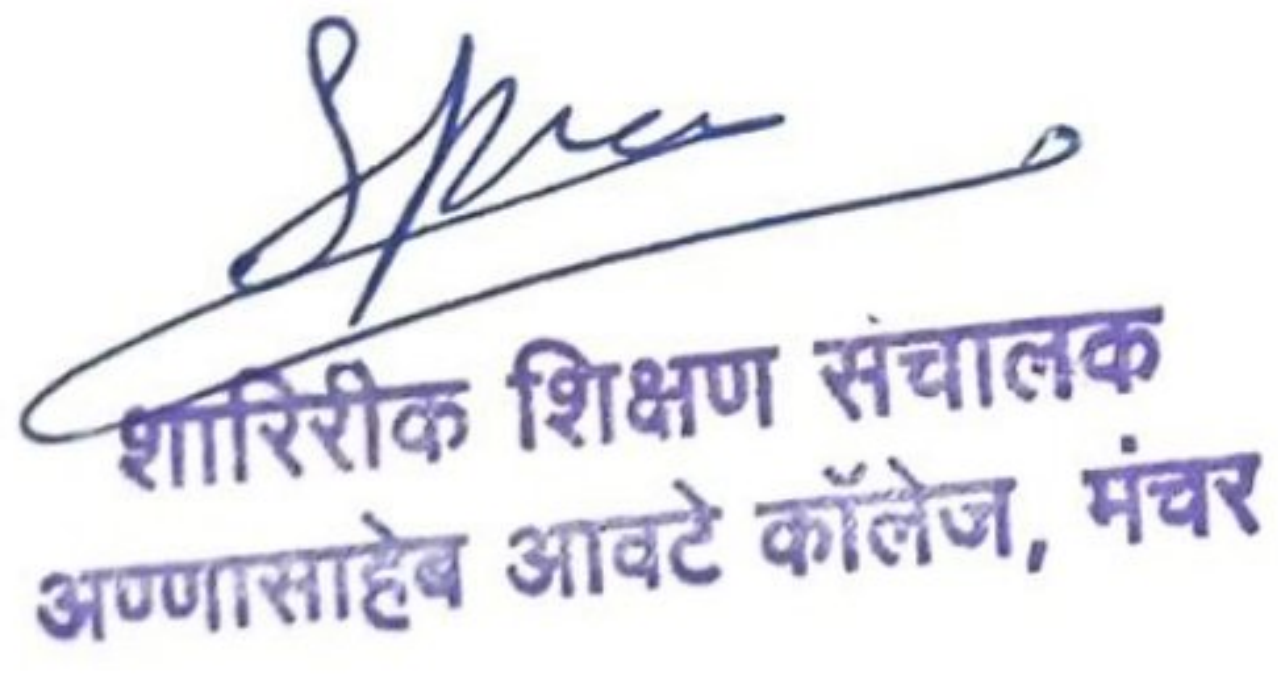 शारिरीक शिक्षण संचालक
अण्णासाहेब आवटे कॉलेज, मंचर